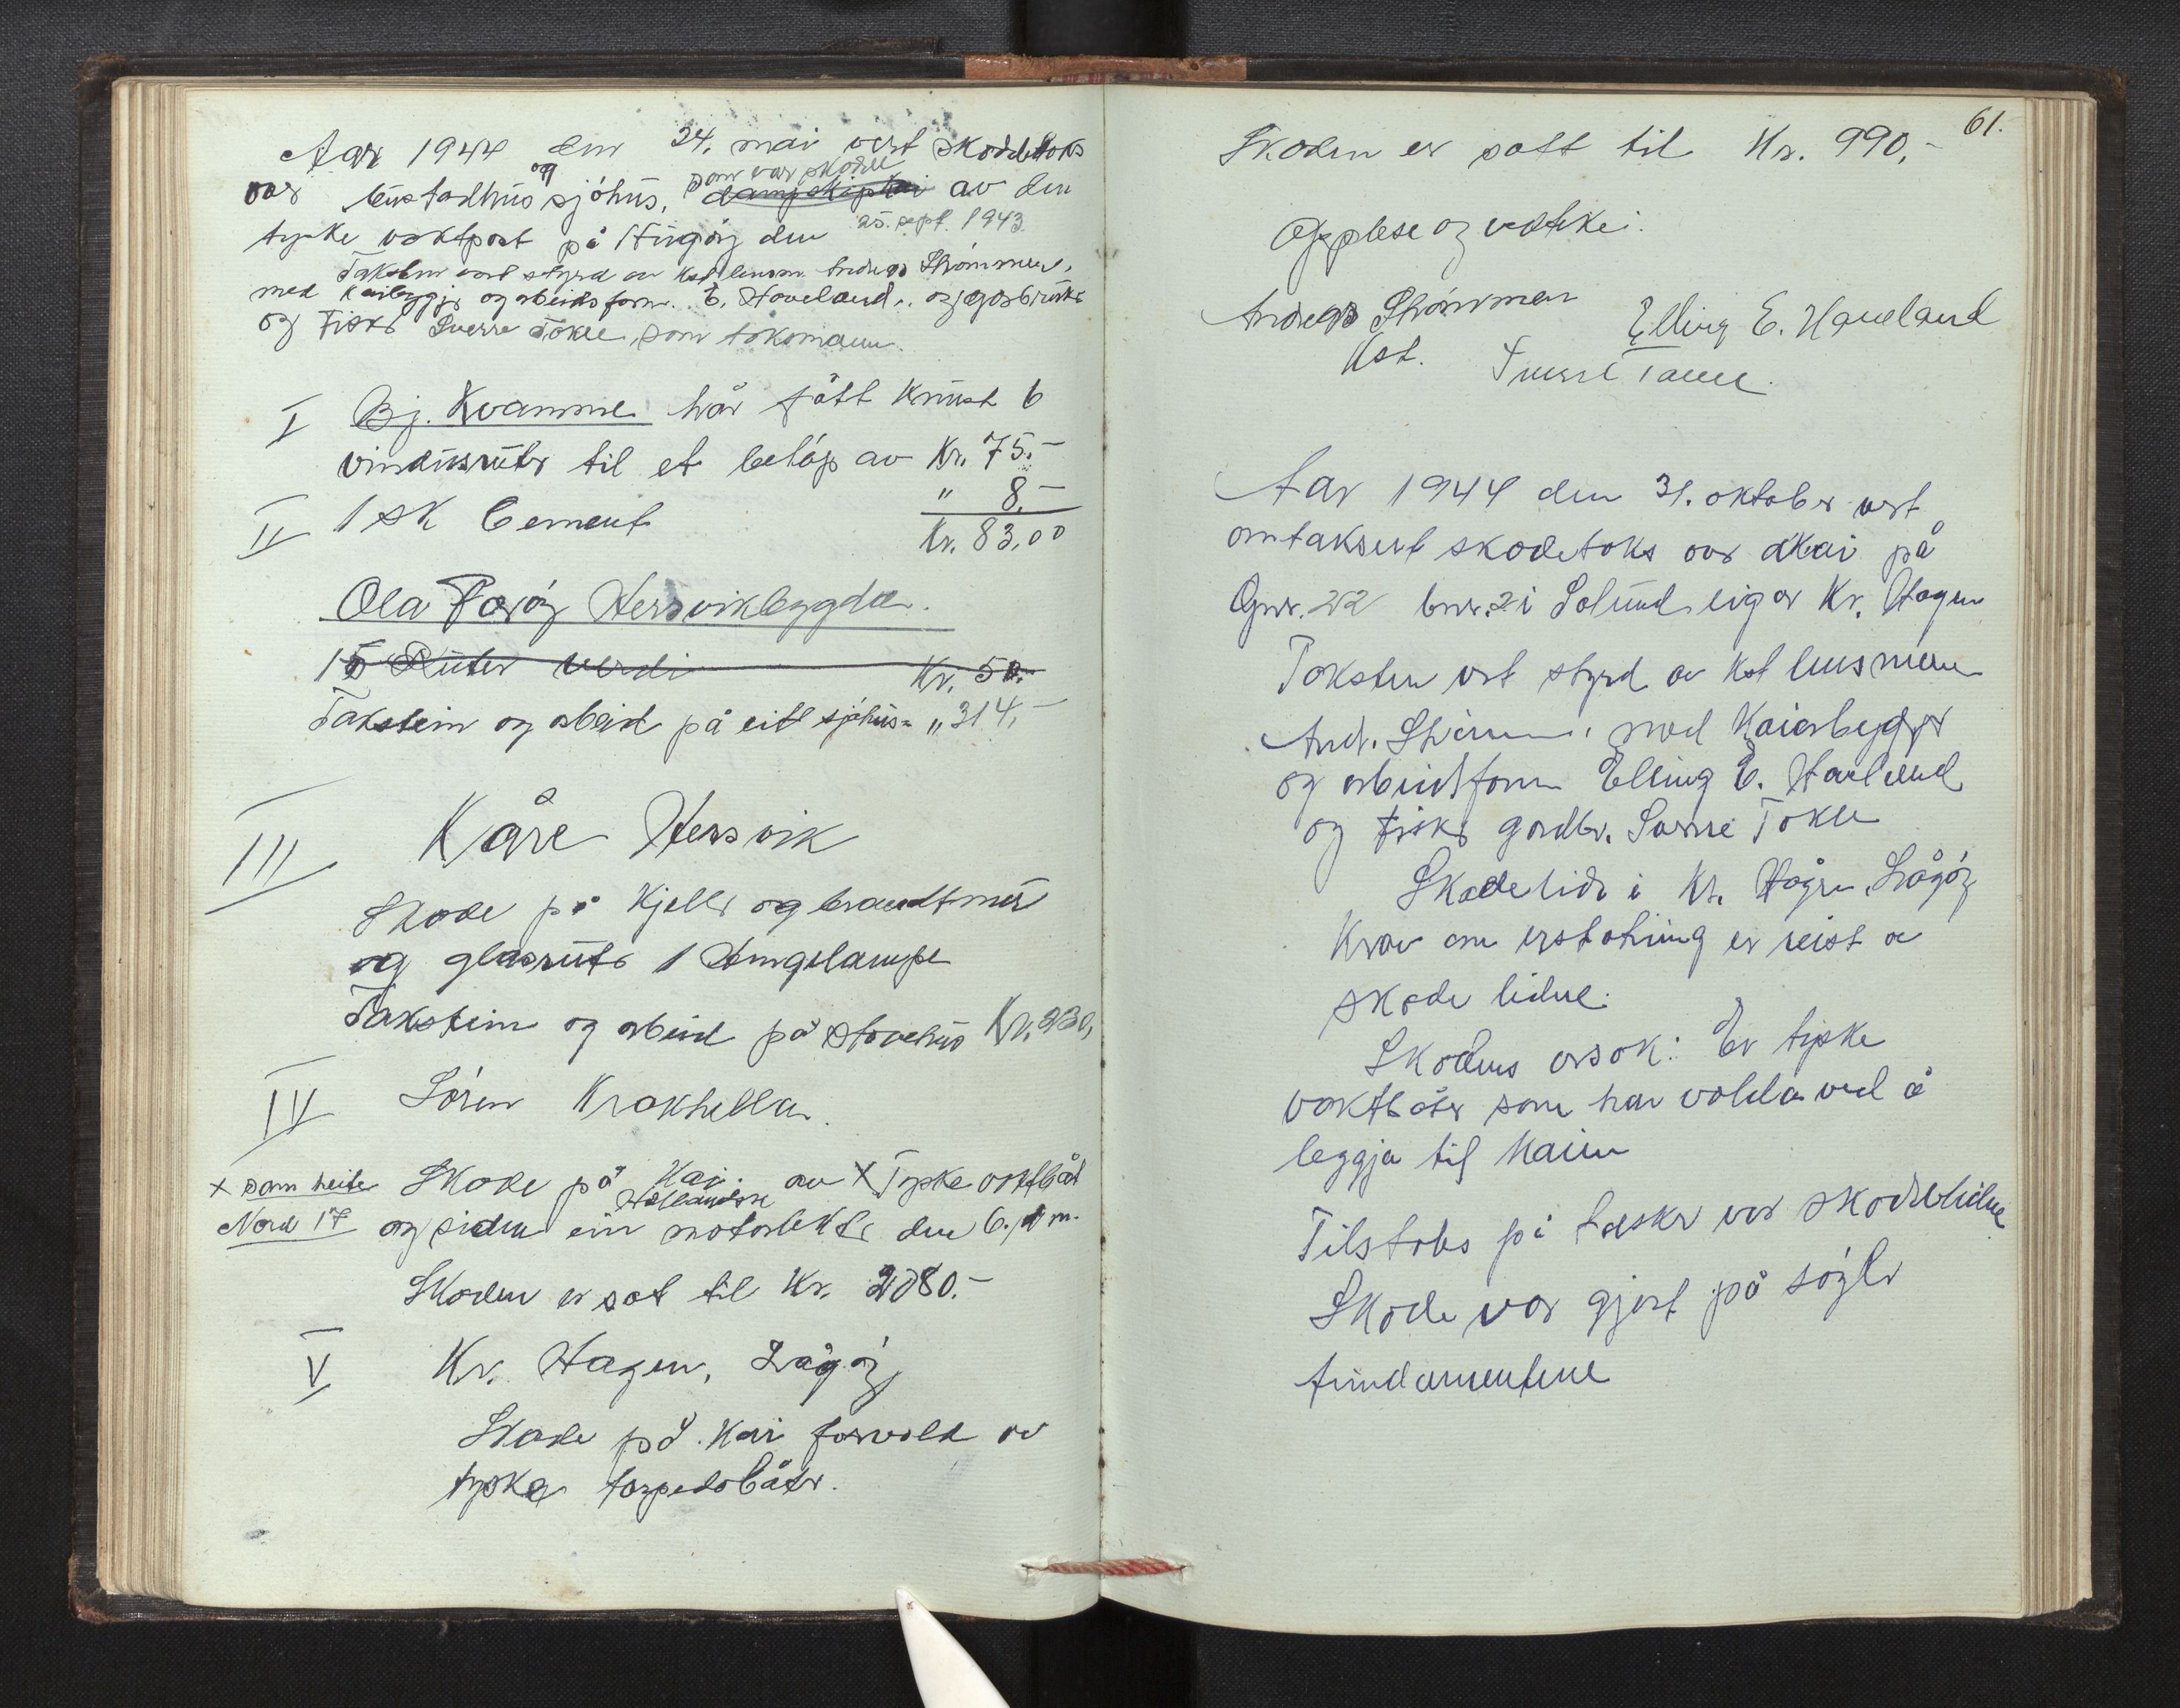 Aar 1944 den 24. mai vert skadetaks
over bustadhus og sjøhus, som var skadde dampskipkai av den
tyske vaktpost på Hugøy den 25. sept. 1943.
Taksten vert styrd av Kst lensm. Andreas Strømmen,
med kaibyggjer og arbeidsform. E. Haveland. og jordbruker
og fisker Sverre Tåkle, som taksmann.
I Bj. Kvamme hår fått knust 6
vindusruter til et beløp av Kr. 75.-
II 1 sk Cement " 8.-
Kr. 83,00
Ola Færøy Hersvikbygda.
15 Ruter verdi Kr. 50.-
Takstein og arbeid på eitt sjøhus = " 314,-
III Kåre Hersvik
Skade på Kjeller og brandtmur
og glasruter 1 Hengelampe
Takstein og arbeid på stovehus Kr. 230,
IV Søren Krakhella.
x som heiter Skade på Kai. av x Tyske vaktbåt
Nord 17 og siden ein Hollandsk motorlekter den 6. d m.
Skaden er sat til Kr. 2080.-
V Kr. Hagen, Lågøy
Skade på Kai forvold av
tyske torpedobåter.
61.
Skaden er satt til Kr. 990,-
Opplese og vedtekei.
Andreas Strømmen Elling E. Haveland
Kst. Sverre Tåkle.
Aar 1944 den 31. oktober vert
omtaksert skadetaks over Kai på
Gnr. 22 bnr. 2 i Solund eigar Kr. Hagen
Taksten vert styrd av Kst lensmann
And. Strømmen. med Kaiarbeygjer
og arbeidsform Elling E. Haveland
og fisker gardbr. Sverre Tåkle
Skadelide i Kr. Hagen Lågøy
Krav om erstatning er reist av
skade lidne.
Skadens orsak: Er tyske
vaktbåter som har volda ved å
leggja til Kaien
Tilstades på taksker var skadelidne
Skade var gjort på søyler
fundamentene